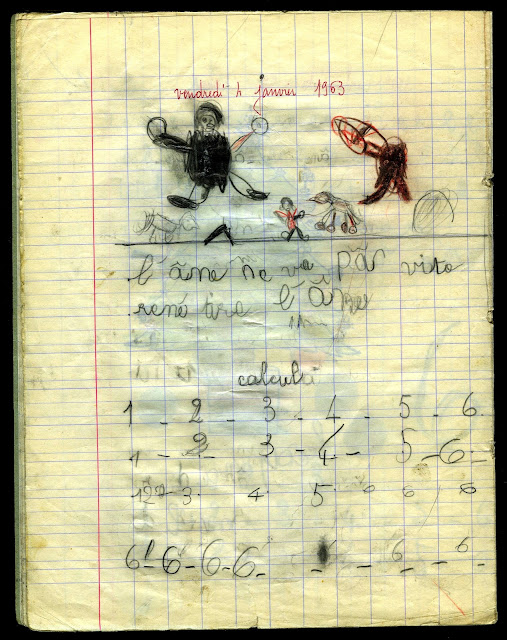 vendredi 4 janvier 1963
l'âne ne va pâ vite
rené tire l'âne
calcul
1 - 2 - 3 - 4 - 5 - 6.
1 - 2 - 3 - 4 - 5 - 6 -
12 - 3. 4. 5. 6 6 6
6 - 6 - 6 - 6 - - - 6 - - 6 -